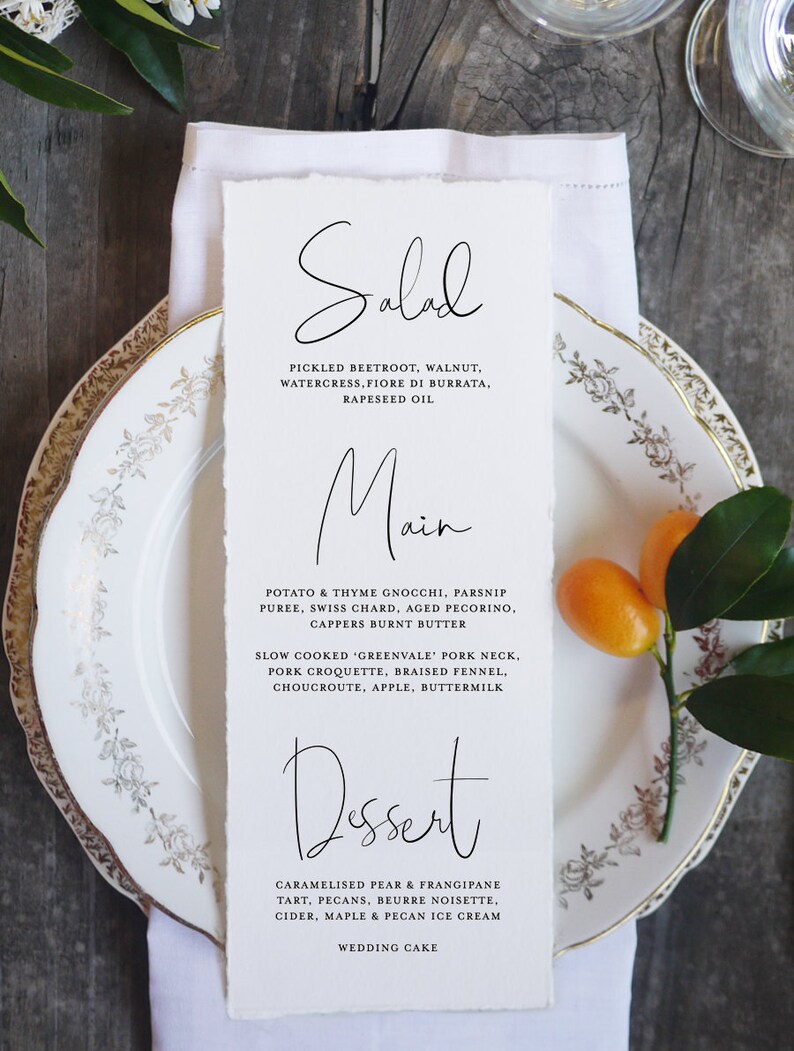 Salad
PICKLED BEETROOT, WALNUT,
WATERCRESS,FIORE DI BURRATA,
RAPESEED OIL
Main
POTATO & THYME GNOCCHI, PARSNIP
PUREE, SWISS CHARD, AGED PECORINO,
CAPPERS BURNT BUTTER
SLOW COOKED ‘GREENVALE’ PORK NECK,
PORK CROQUETTE, BRAISED FENNEL,
CHOUCROUTE, APPLE, BUTTERMILK
Dessert
CARAMELISED PEAR & FRANGIPANE
TART, PECANS, BEURRE NOISETTE,
CIDER, MAPLE & PECAN ICE CREAM
WEDDING CAKE